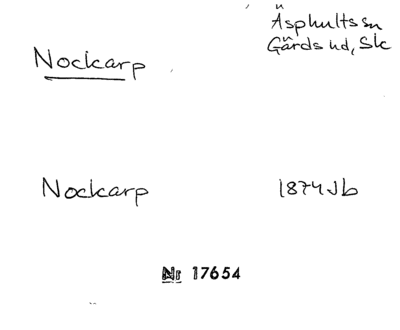 Nockarp
Asphults sn
Gärds hd, Sk
Nockarp
1874 Jb
Nr 17654